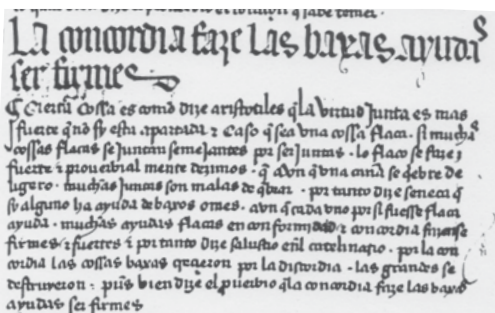 La concordia faze las baxas ayudas
ser firmes
Cierta Cossa es como dize aristotiles q̃ la virtud Junta es mas
fuerte q̃ nõ sy esta apartada ⁊ Caso q̃ sea vna cossa flaca. si muchas
cossas flacas se Juntan semejantes por ser Juntas. lo flaco se faze
fuerte ⁊ proverbial mente dezimos. q̃ Avn q̃ vna caña se q̃ebre de
ligero. muchas Juntas son malas de q̃brar. por tanto dize seneca q̃
sy alguno ha ayuda de baxos omes. avn q̃ cada vno por si fuesse flaca
ayuda. muchas ayudas flacas en conformidad ⁊ concordia fazense
firmes ⁊ fuertes ⁊ por tanto dize salustio enl catelinario. por la con
cordia las cossas baxas creçieron por la discordia. las grandes se
destruyeron. pues bien dize el puerbio q̃ la concordia faze las baxas
ayudas ser firmes